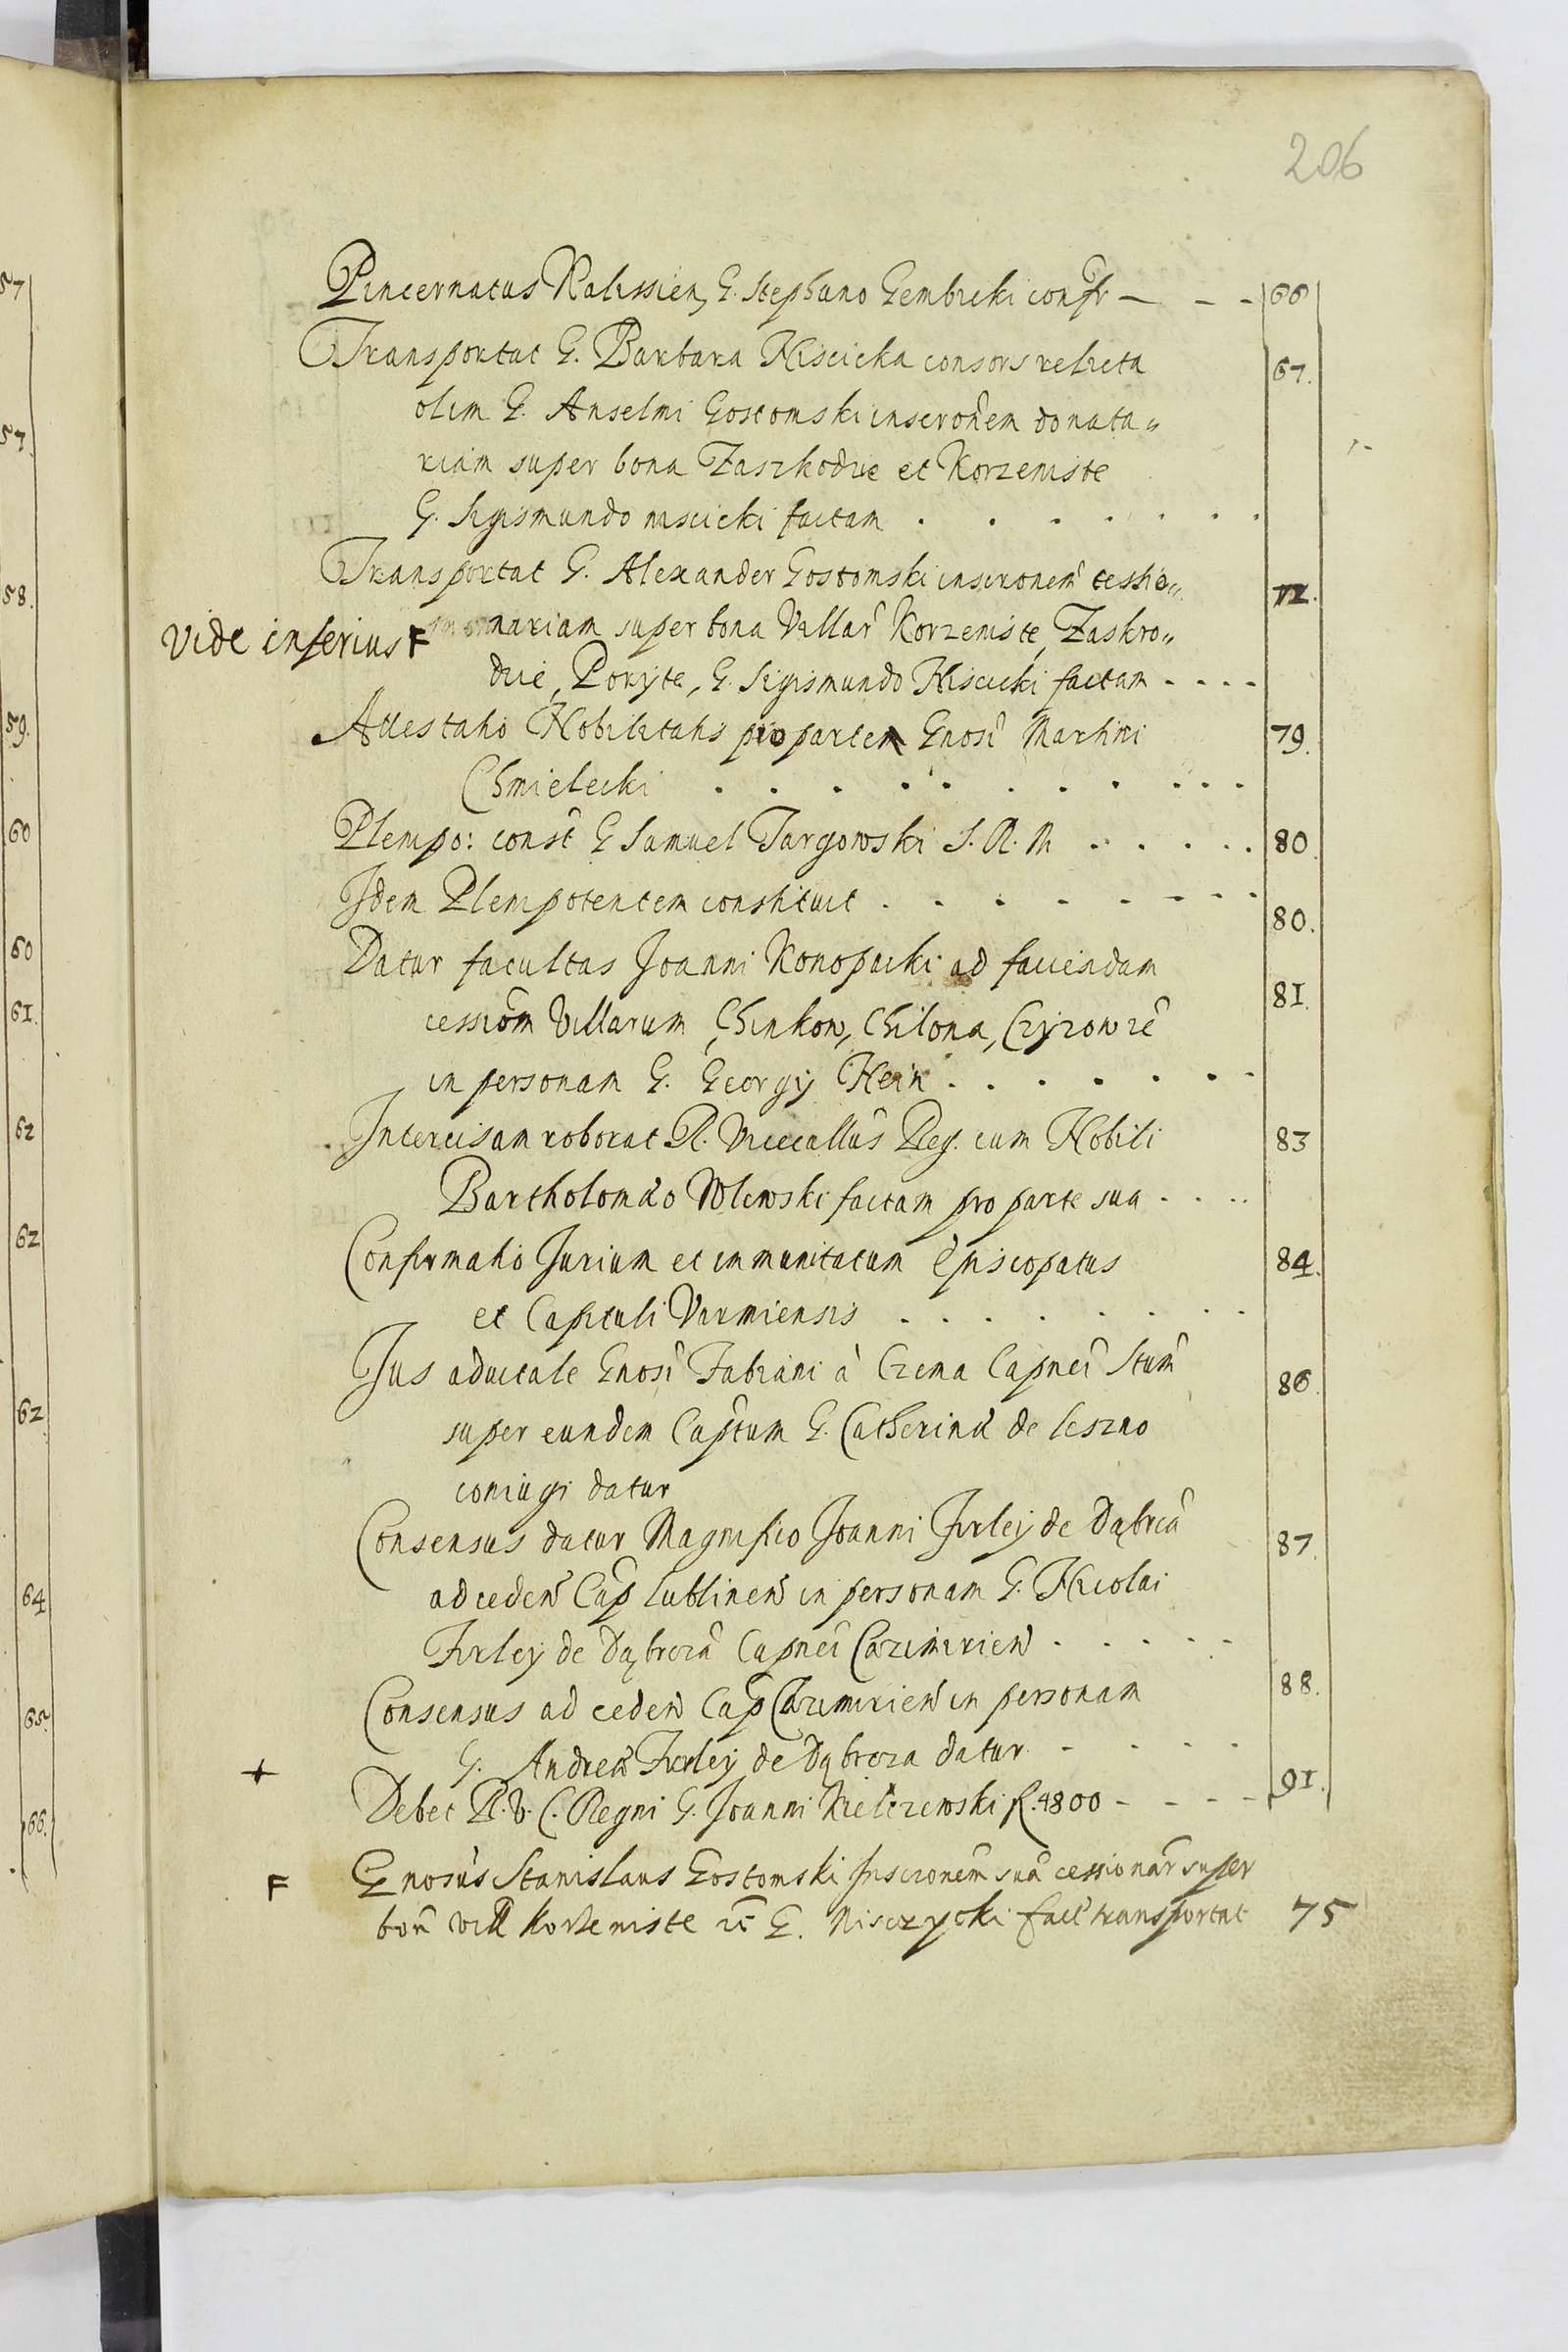 206
Pincernatus Kalissien, G. Stephano Gembicki confr — - - 66
Transportat G. Barbara Niscicka consors relicta 67.
olim G. Anselmi Gostomski inscrōnem donata„
riam super bona Zaszkodzie et Korzeniste
G. Sigismundo niscicki factam . . . . . . .
Transportat G. Alexander Gostomski inscronem̃ cessio„ 72.
Vide inferius F nariam super bona Villar̃ Korzeniste, Zaskro„
dzie, Poryte, G. Sigismundo Niscicki factam . . . .
Attestatio Nobilitatis pro parte Gnosi Martini 79.
Chmielecki . . . . . . . . . . .
Plenipo: consť G Samuel Targowski S. R. M . . . . . 80.
Idem Plenipotentem constituit . . . . . . . . 80.
Datur facultas Joanni Konopacki ad faciendam 81.
cessiom̃ Villarum, Chinkow, Chilona, Czyzow zc̃
in personam G. Georgij Hein . . . . . . .
Intercisam roborat R. Vicecallũs Reg. cum Nobili 83
Bartholomæo Wlewski factam pro parte sua . . . .
Confirmatio Jurium et immunitatum Episcopatus 84.
et Capituli Varmiensis . . . . . . . .
Jus advitale Gnosi Fabiani à Czema Capnei Stum̃ 86.
super eundem Captum G. Catherinæ de Leszno
coniugi datur
Consensus datur Magnifico Joanni Firley de Dąbrcã 87.
ad ceden̄ Cap̃ Lublinen̄ in personam G. Nicolai
Firley de Dąbrozã Capnei Cazimirien̄ . . . . .
Consensus ad ceden̄ Cap̃ Cazimirien̄ in personam 88.
G. Andreæ Firley de Dąbroza datur - . . . .
+ Debet R. V. C. Regni G. Joanni Kielczewski fl. 4800 - - - - 91.
F Gnosus Stanislaus Gostomski Inscronem̃ suã cessionar̃ super
bon̄ vill Korzeniste zc̃ G. Nisczycki fact̃ transportat 75
57
57.
58.
59.
60
60
61.
62
62
62.
64
65.
66.